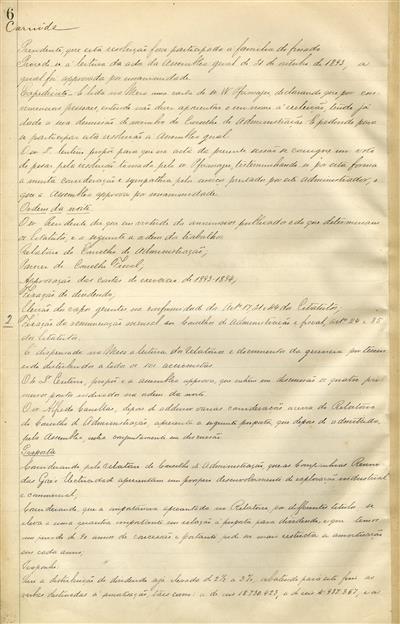 6
Carnide
Presidente que esta resolução fora participada á familia do finado
Procede-se a leitura da acta da Assemblea geral de 31 de outubro de 1893, a
qual foi approvada por unanimidade
Expediente. É lida na Mesa uma carta do sr W. declarando que por con-
veniencias pessoaes, entende não dever apresentar o seu nome á reeleição, tendo já
dado a sua demissão de membro do Conselho de Administração. E pedindo para
se participar esta resolução a Assemblea geral
O sr Dr. Centeno propõe para que na acta da presente sessão se consigne um voto
de pezar pela resolução tomada pelo sr testemunhando-se por esta forma
a muita consideração e sympathia pelo serviço prestado por este Administrador, o
que a Assemblea approva por unanimidade
Ordem da noite
O sr Presidente diz que em virtude do annuncio publicado e do que determinam
os Estatutos, é a seguinte a ordem do trabalho
Relatorio do Conselho de Administração;
Parecer do Conselho Fiscal;
Approvação das contas do exercicio de 1893-1894;
Fixação do dividendo;
Eleição dos corpos gerentes na conformidade dos Artos 17, 21 e 44 dos Estatutos,
2
Fixação da remuneração mensal ao Conselho de Administração e fiscal, artos 24 e 35
dos Estatutos.
É dispensada na Mesa a leitura do Relatorio e documentos da gerencia por terem
sido distribuidos a todos os srs accionistas
O sr Dr Centeno, propõe e a assemblea approva, que entrem em discussão os quatro pri-
meiros pontos indicados na ordem da noite
O sr Alfredo Canellas, depois de adduzir varias considerações acerca do Relatorio
do Conselho de Administração, apresenta a seguinte proposta, que depois de admittida,
pela Assemblea, entra conjuntamente em discussão
Proposta
Considerando pelo relatorio do Conselho de Administração, que as Companhias Reuni-
das Gaz e Electricidade apresentam um prospero desenvolvimento de exploração industrial
e commercial,
Considerando, que a importancia apresentada no Relatorio, por differentes titulos se
eleva a uma quantia importante em relação á proposta para dividendo, e que temos
um periodo de 40 annos de concessão e portanto póde ser mais restricta a amortisação
em cada anno;
Proponho:
Que a distribuição do dividendo seja elevada de 2% a 3%, retirando para este fim as
verbas destinadas á amortisação, taes como: a de reis 18.730.423, a de reis 4.487.367, e a